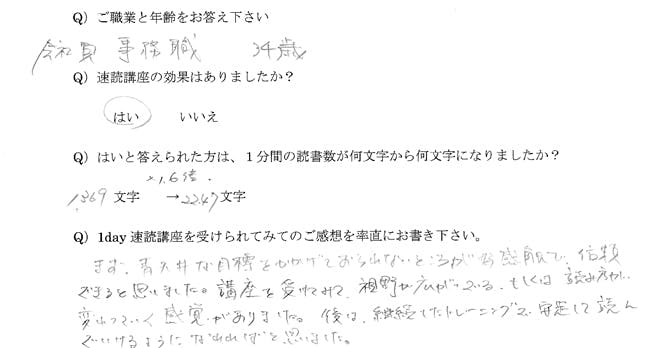 Q）ご職業と年齢をお答え下さい
会社員 事務職 34歳
Q）速読講座の効果はありましたか？
はい いいえ
Q）はいと答えられた方は、１分間の読書数が何文字から何文字になりましたか？
×1.6倍.
1369 文字 →2247文字
Q）1day 速読講座を受けられてみてのご感想を率直にお書き下さい。
まず、青天井な目標をかかげておられないところが好感触で、信頼
できると思いました。講座を受けてみて、視野が広がっている、もしくは読み方が
変わっていく感覚がありました。後は、継続したトレーニングで、安定して読ん
でいけるようになれればと思いました。